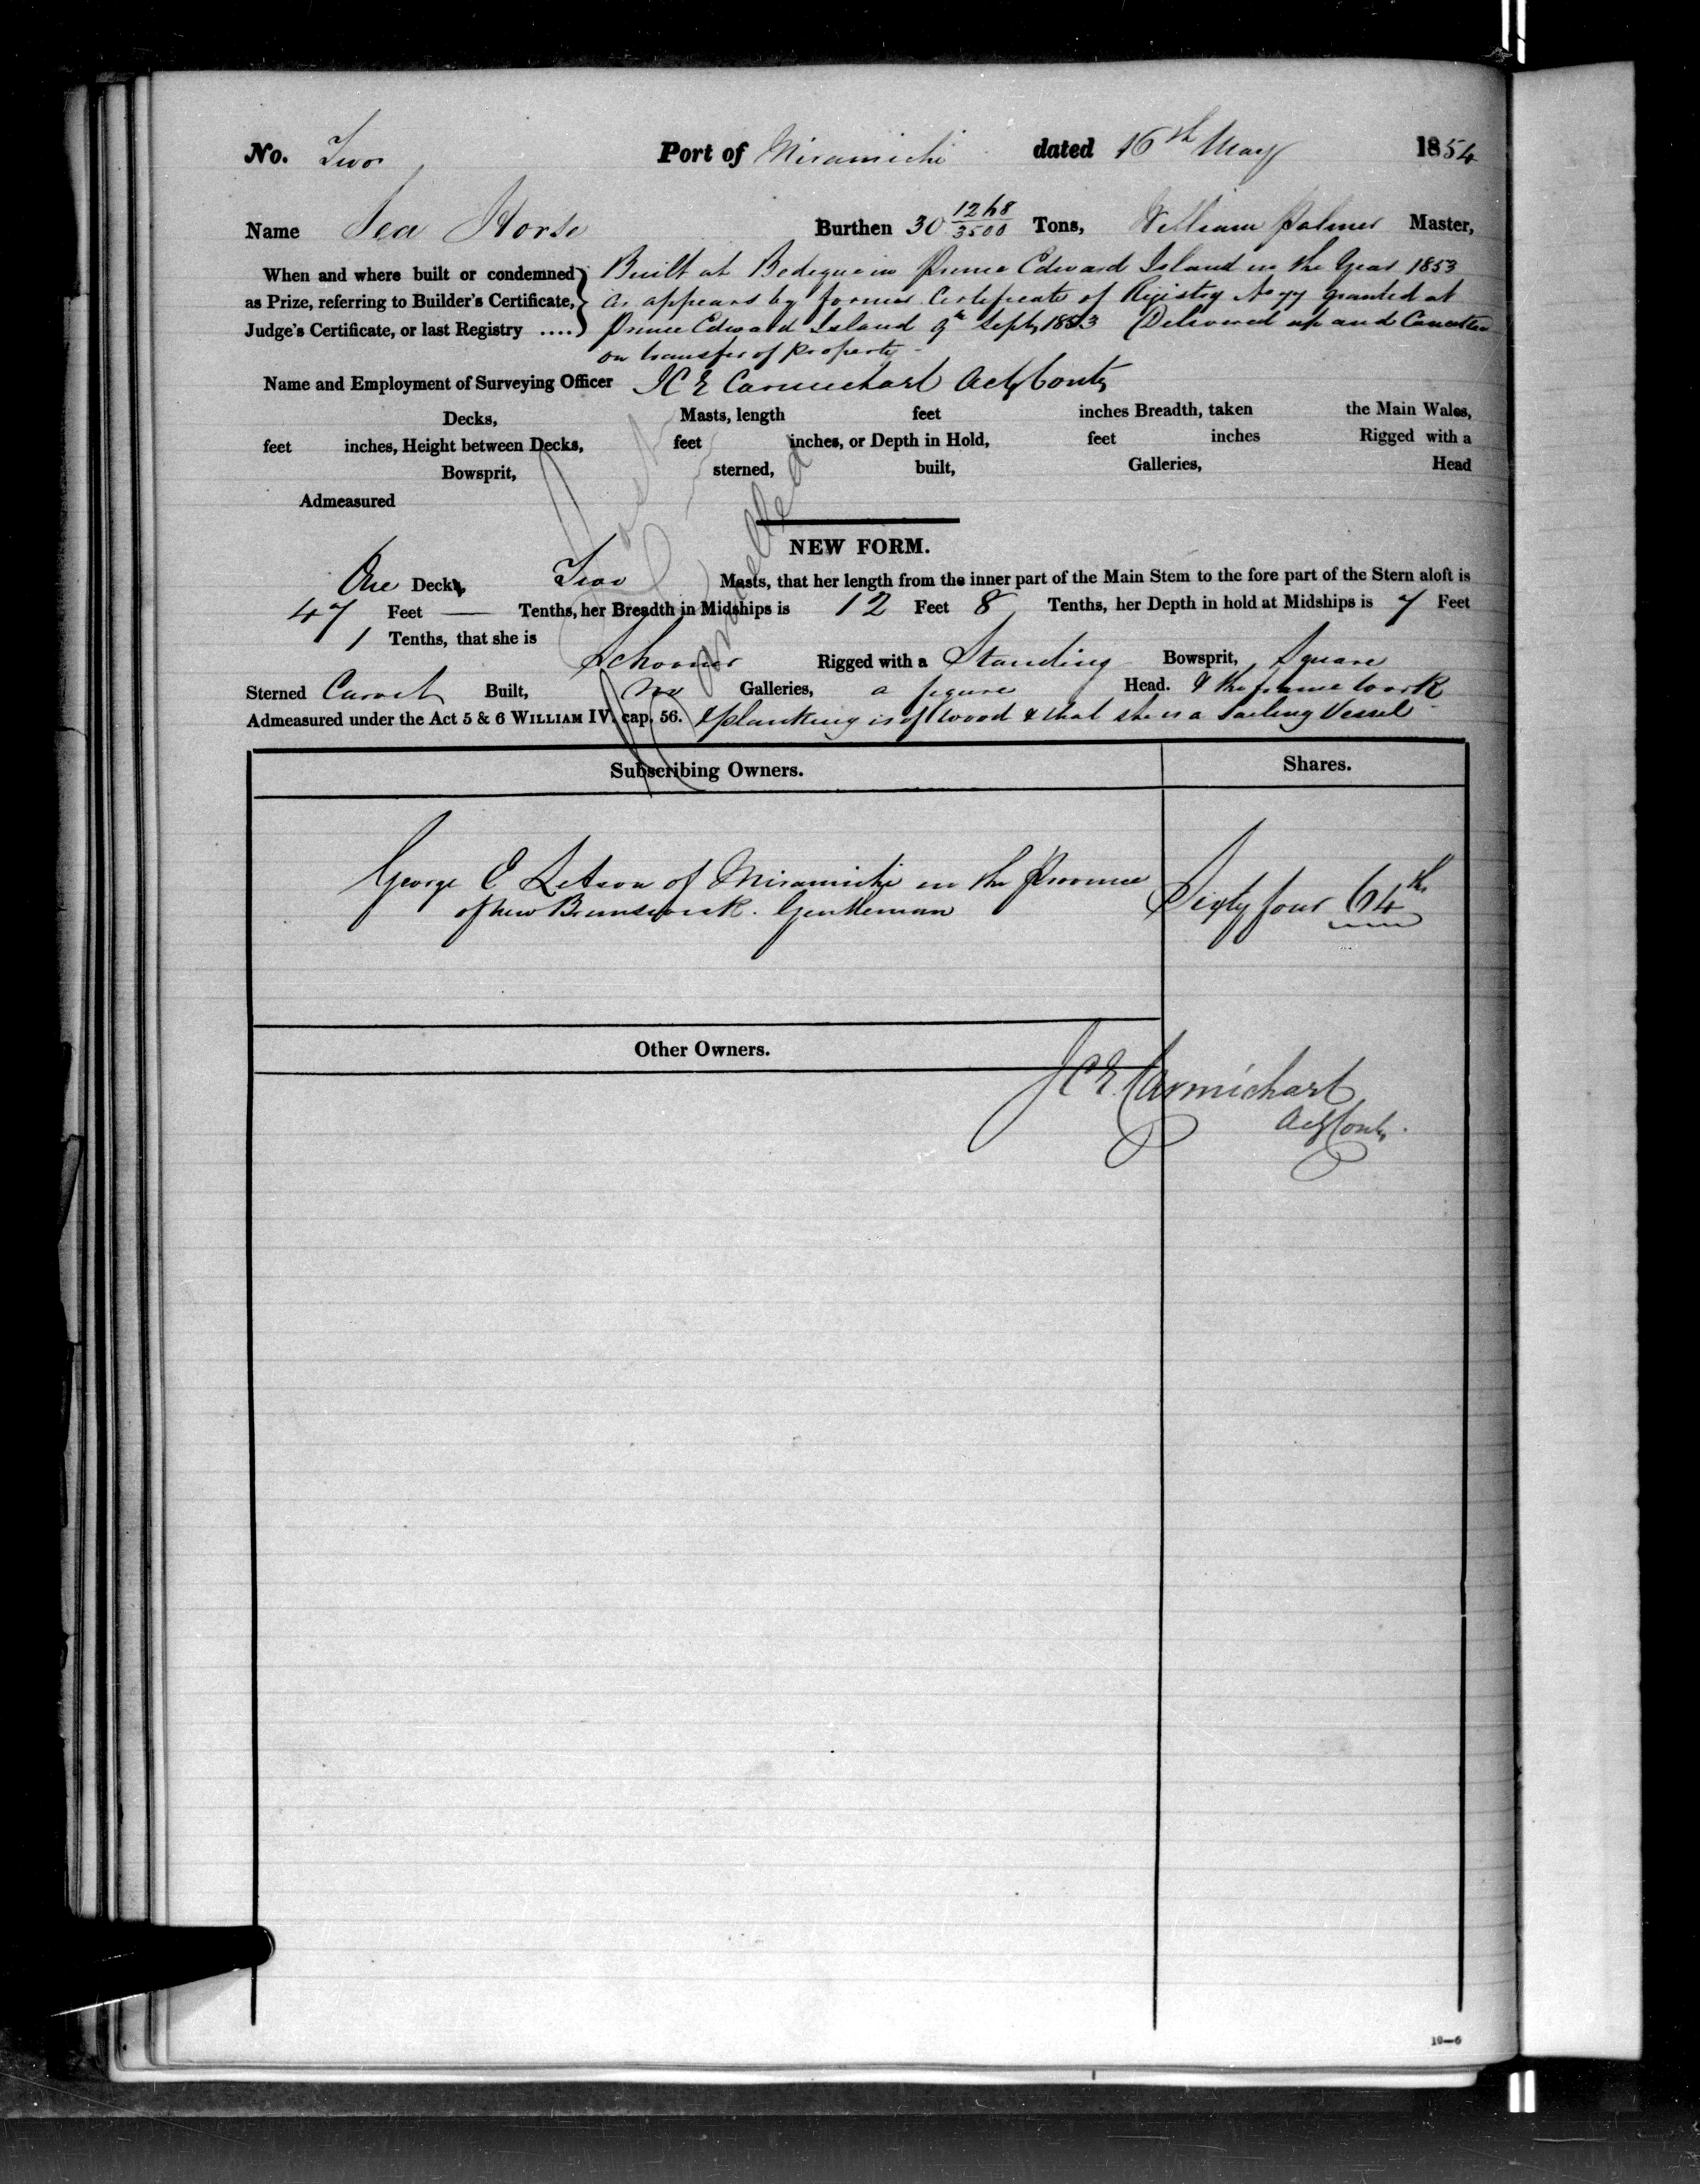 No. Two Port of Miramichi dated 16th May 1854
Name Sea Horse Burthen 30 1268/3500 Tons, William Palmer Master,
When and where built or condemned Built at Bedeque in Prince Edward Island in the Year 1853
as Prize, referring to Builder's Certificate, As appears by former Certificate of Registry No 77 granted at
Judge's Certificate, or last Registry .... Prince Edward Island 9th Septr 1853 Delivered up and Cancelled
on transfer of property -
Name and Employment of Surveying Officer J C E Carmichael Actg Contr
Decks, Masts, length feet inches Breadth, taken the Main Wales,
feet inches, Height between Decks, feet inches, or Depth in Hold, feet inches Rigged with a
Bowsprit, sterned, built, Galleries, Head
Admeasured
Cancelled
NEW FORM.
One Deck, Two Masts, that her length from the inner part of the Main Stem to the fore part of the Stern aloft is
47 Feet — Tenths, her Breadth in Midships is 12 Feet 8 Tenths, her Depth in hold at Midships is 7 Feet
1 Tenths, that she is
Schooner Rigged with a Standing Bowsprit, Square
Sterned Carvel Built, no Galleries, a figure Head. & the frame work
Admeasured under the Act 5 & 6 WILLIAM IV. cap. 56. & planking is of wood & that she is a Sailing Vessel
Subscribing Owners. Shares.
George E Letson of Miramichi in the Province
of New Brunswick. Gentleman Sixty four 64th
Other Owners.
J C E Carmichael
Actg Contr.
10—6